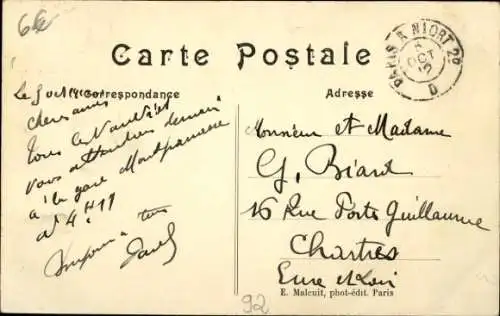 6€
Carte Postale
PARIS À NIORT 2º
8
OCT
12
D
Correspondance
Adresse
Le 8 oct
Chers amis
Tous
Vous attendrons demain
à la gare Montparnasse
à 4 H 11
Bonjour à tous
Paul
Monsieur et Madame
G. Biard
16 Rue Porte Guillaume
Chartres
Eure et Loir
E. Malcuit, phot-édit. Paris
92